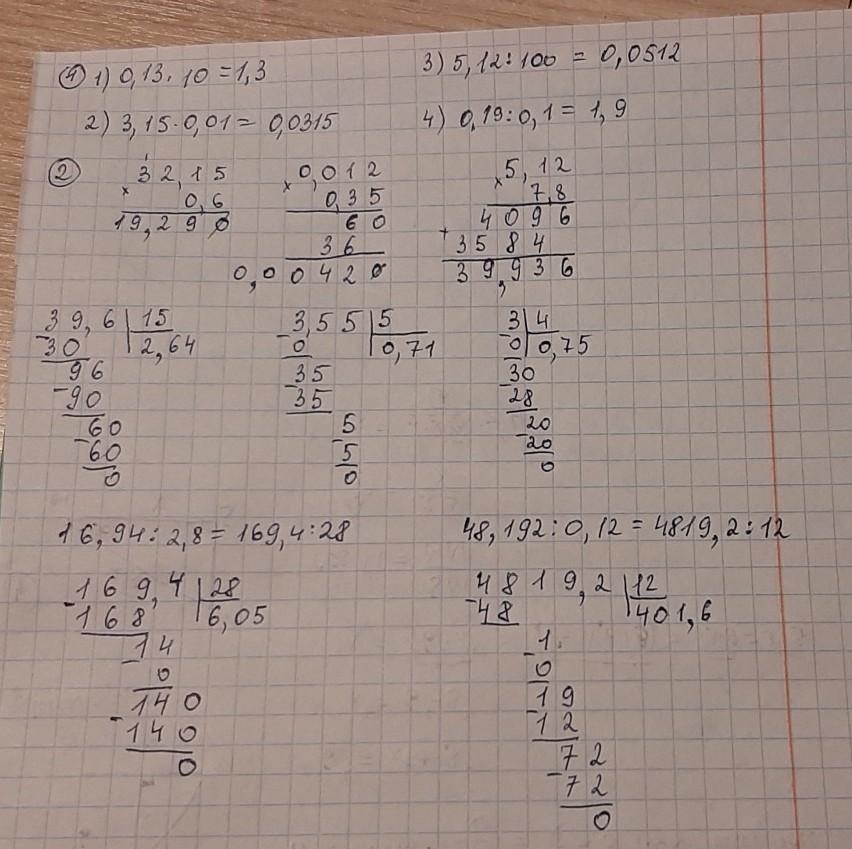 ① 1) 0,13 · 10 = 1,3
3) 5,12 : 100 = 0,0512
2) 3,15 · 0,01 = 0,0315
4) 0,19 : 0,1 = 1,9
②
1
32,15
×
0,6
19,290
0,012
×
0,35
60
36
0,00420
5,12
×
7,8
4096
+
3584
39,936
39,6 | 15
-30 | 2,64
96
-90
60
-60
0
3,55 | 5
-0 | 0,71
35
-35
5
-5
0
3 | 4
-0 | 0,75
30
-28
20
-20
0
16,94 : 2,8 = 169,4 : 28
48,192 : 0,12 = 4819,2 : 12
169,4 | 28
-168 | 6,05
14
-0
140
-140
0
4819,2 | 12
-48 | 401,6
1
-0
19
-12
72
-72
0